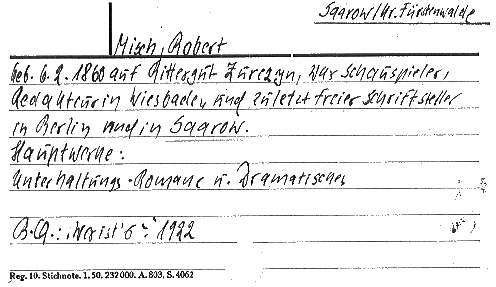 Saarow/Kr. Fürstenwalde
Misch, Robert
geb. 6.2.1860 auf Rittergut Zurczyn, war Schauspieler,
Redakteur in Wiesbaden und zuletzt freier Schriftsteller
in Berlin und in Saarow.
Hauptwerke:
Unterhaltungs-Romane u. Dramatisches
B.Q.: "Wer ist's" 1922
Reg. 10. Stichnote. 1. 50. 232000. A. 803. S. 4062